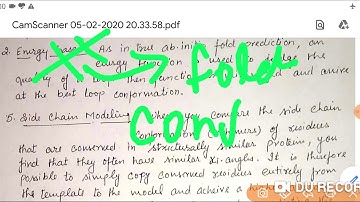 CamScanner 05-02-2020 20.33.58.pdf
2. Energy based As in true ab initio fold prediction, an
energy function is used to judge the
quality of a loop then function
and arrive
at the best loop conformation.
fold
Conf
5. Side Chain Modeling When you compare the side chain
conformations of residues
that are conserved in structurally similar proteins, you
find that they often have similar x1-angles. It is therefore
possible to simply copy conserved residues entirely from
the template to the model and acheive a
DU RECOR